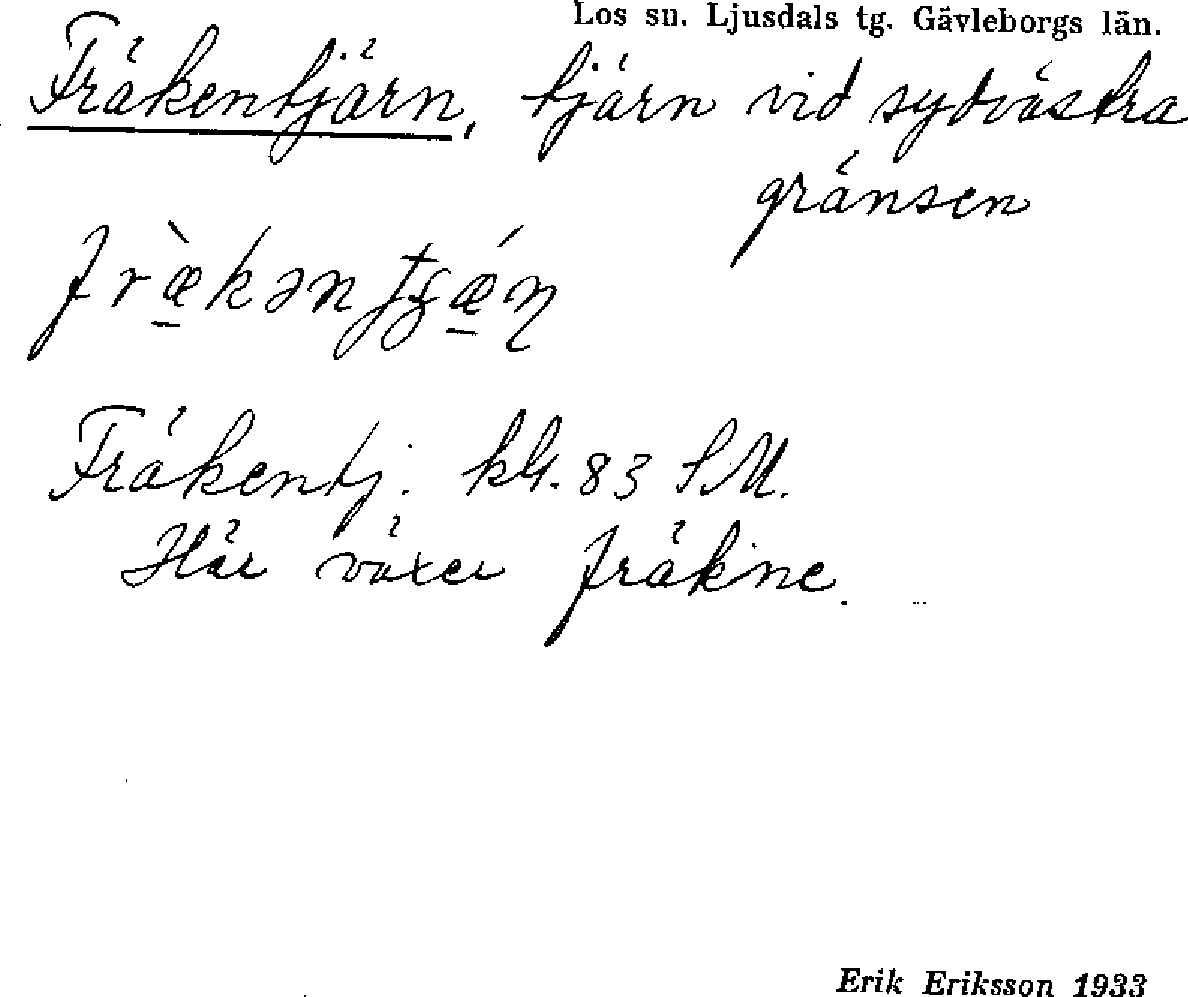 Los sn. Ljusdals tg. Gävleborgs län.
Fräkentjärn, tjärn vid sydvästra
gränsen
Fräkentj. kbl. 83 SM.
Här växer fräkne.
Erik Eriksson 1933